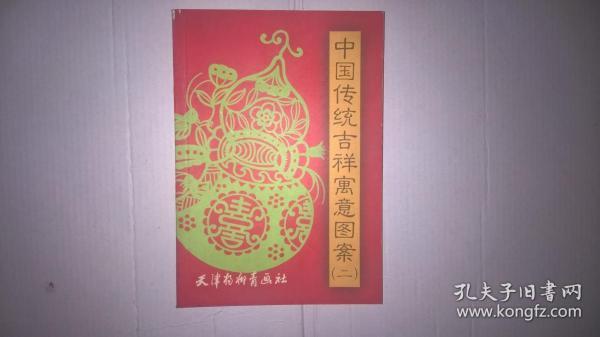 中国传统吉祥寓意图案(二)
天津杨柳青画社
孔夫子旧书网
www.kongfz.com